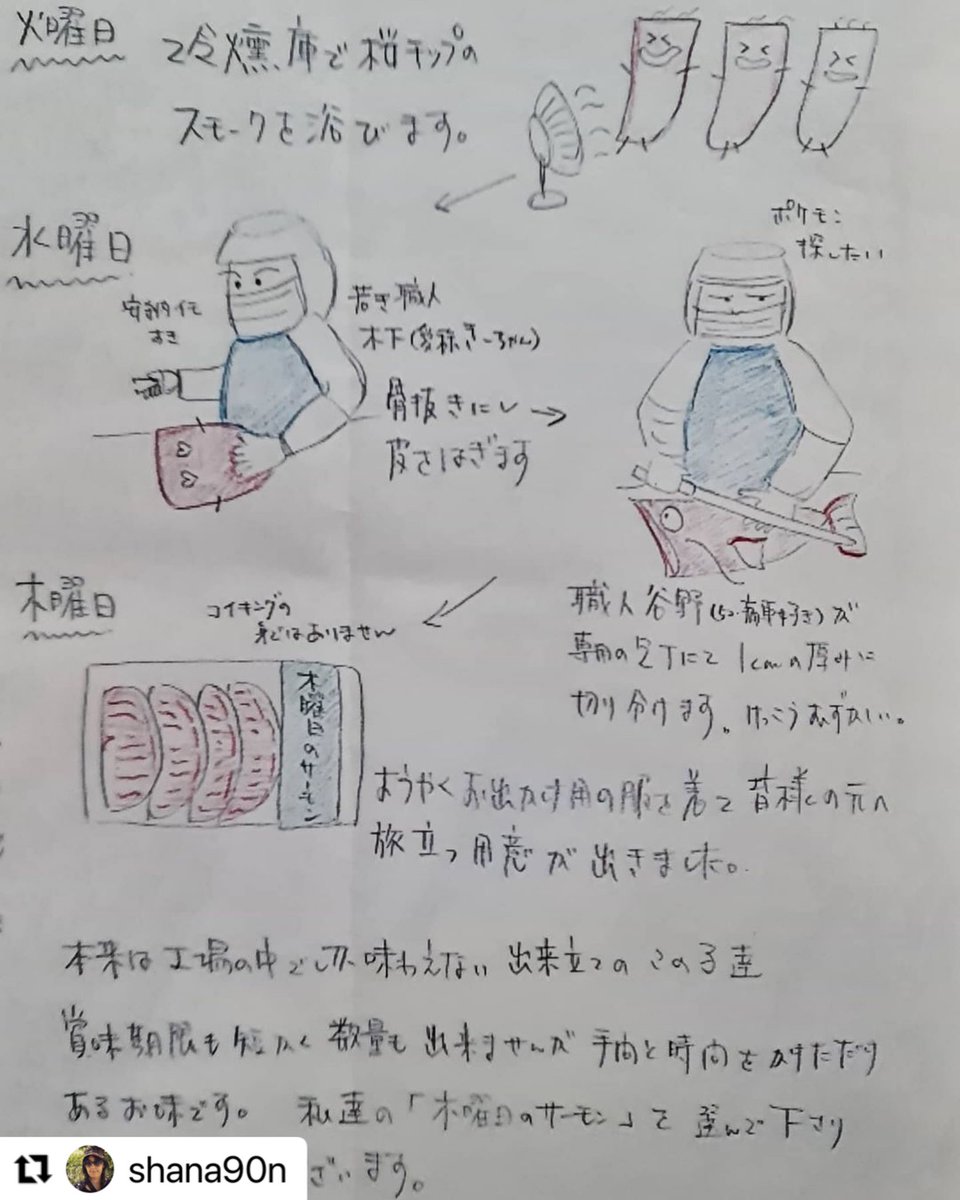 火曜日
冷燻庫で桜チップの
スモークを浴びます。
水曜日
安納イモ
すき
若き職人
木下(愛称きーちゃん)
骨抜きにし→
皮をはぎます
ポケモン
探したい
職人谷野(52・痛車好き)が
専用の包丁にて1cmの厚みに
切り分けます。けっこうむずかしい。
木曜日
コイキングの
身ではありません
木曜日のサーモン
ようやくお出かけ用の服を着て皆様の元へ
旅立つ用意が出きました。
本来は工場の中でしか味わえない出来立てのこの子達
賞味期限も短かく数量も出来ませんが手間と時間をかけただけ
あるお味です。私達の「木曜日のサーモン」を選んで下さり
ざいます。
shana90n